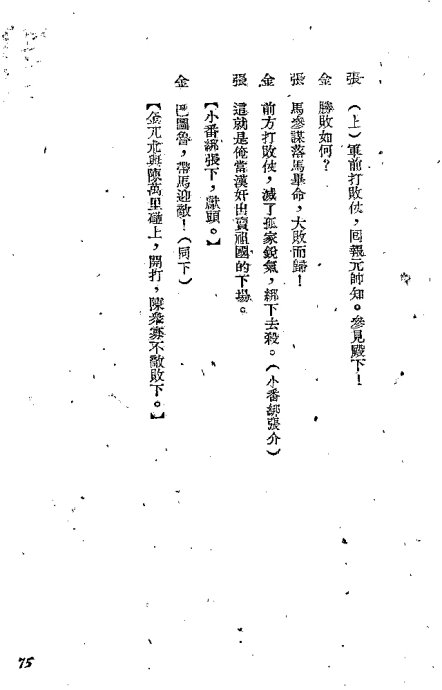 張　（上）軍前打敗仗，回報元帥知。參見殿下！
金　勝敗如何？
張　馬參謀落馬畢命，大敗而歸！
金　前方打敗仗，滅了孤家銳氣，綁下去殺。（小番綁張介）
張　這就是俺當漢奸出賣祖國的下場。
【小番綁張下，獻頭。】
金　巴圖魯，帶馬迎敵！（同下）
【金兀朮與陳萬里碰上，開打，陳衆寡不敵敗下。】
75